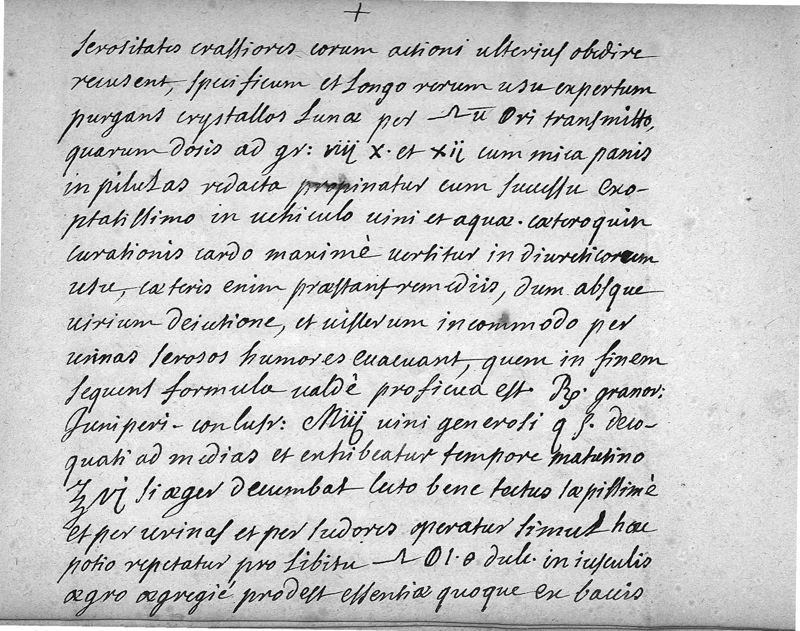 +
serositates crassiores eorum actioni ulterius obedire
recusent, specificum et longo rerum usu expertum
purgans crystallos Lunæ per ori transmitto,
quarum dosis ad gr: viij x. et xij cum mica panis
in pilulas redacta propinatur cum successu exo-
ptatissimo in vehiculo vini et aquæ. cæteroquin
curationis cardo maximè vertitur in diureticorum
usu, cæteris enim præstant remediis, dum absque
virium deiectione, et viscerum incommodo per
urinas serosos humores evacuant, quem in finem
sequens formula valdè proficua est. ℞. granor:
Juniperi. contusr: Miij vini generosi q s. deco-
quati ad medias et exhibeatur tempore matutino
℥ vj si æger decumbat lecto bene tectus sæpissimè
et per urinas et per sudores operatur simul hæc
potio repetatur pro libitu dulc. in iusculis
ægro ægregié prodest essentiæ quoque ex baccis